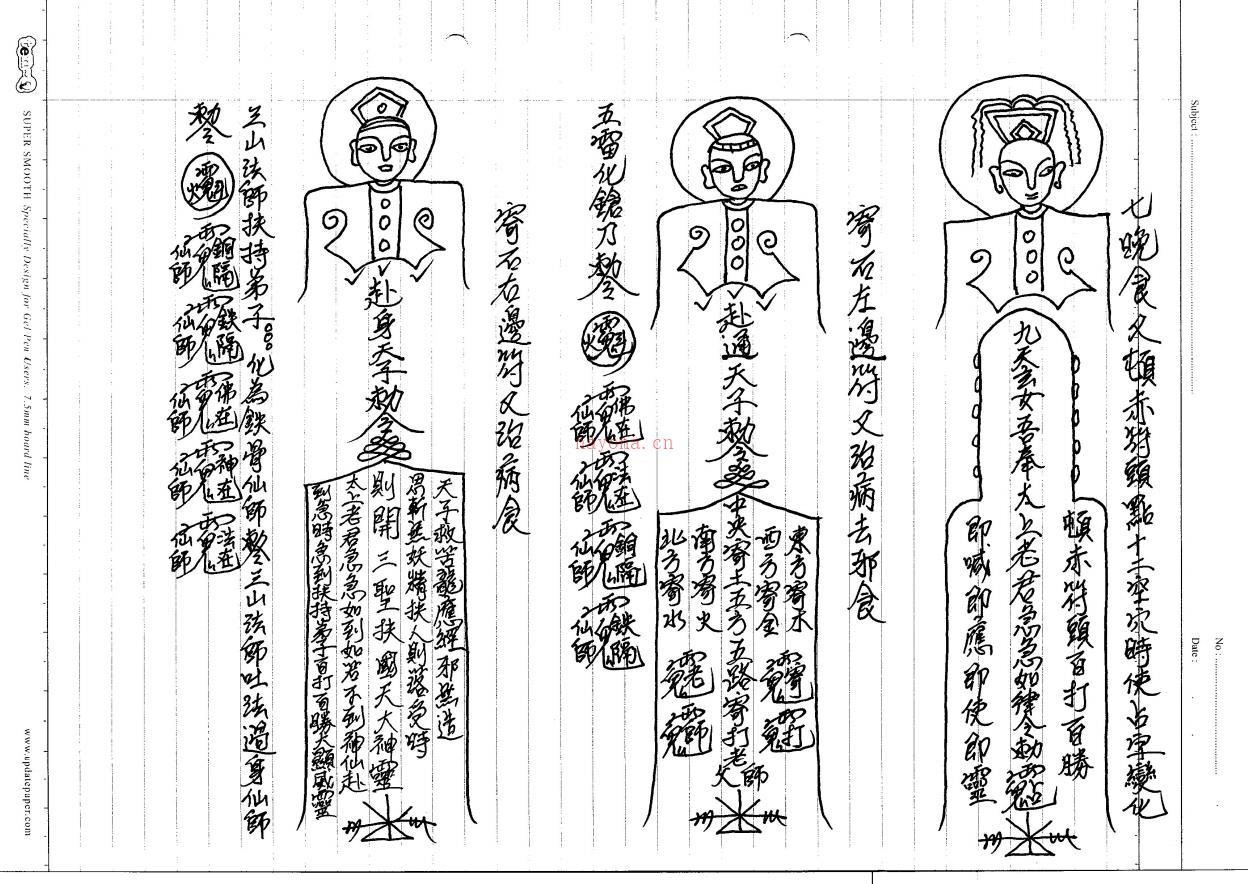 Subject :
No :
Date :
七晚食又頓赤符頭點十二空穴時使占字變化
九天玄女吾奉太上老君急急如律令勅
頓赤符頭百打百勝
即喊即應即使即靈
寄石左邊符又治病去邪食
赴通天子勅令
中央寄土五方五路寄打老師父
東方寄木
西方寄金
南方寄火
北方寄水
五雷化鎗乃勅令
佛在
仙師
法在
仙師
銅隔
仙師
鉄隔
仙師
寄石右邊符又治病食
赴身天子勅令
天子救苦龍應經邪然造
思斬然妖精扶人則落急時
則開三聖扶國天大神靈
太上老君急急如到如若不到神仙赴
到急時急到扶持弟子百打百勝大顯威靈
三山法師扶持弟子。。。化為鉄骨仙師勅令三山法師吐法過身仙師
勅令
銅隔
仙師
鉄隔
仙師
佛在
仙師
神在
仙師
法在
仙師
nayona.cn
SUPER SMOOTH Specially Design for Gel Pen Users. 7.5mm board line
www.updatepaper.com